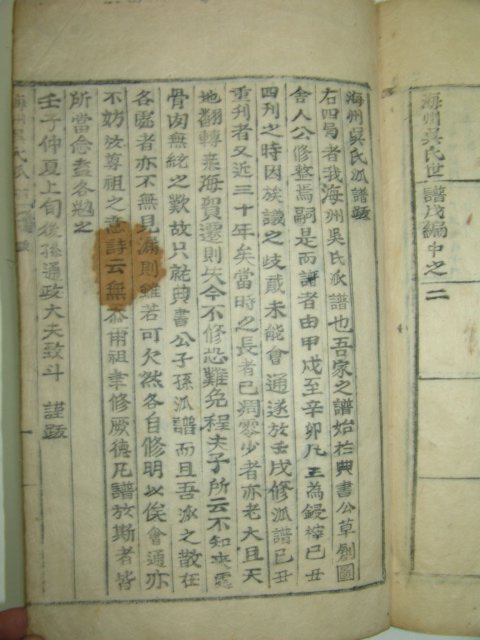 海州吳氏世譜戊編中之二
海州吳氏派譜跋
右四局者我海州吳氏派譜也吾家之譜始於典書公草創圖
舍人公修整焉嗣是而譜者由甲戌至辛卯凡五為鋟梓已丑
四刊之時因族議之歧貳未能會通遂於壬戌修派譜已丑
重刊者又近三十年矣當時之長者已凋零少者亦老大且天
地翻轉桑海貿遷則失今不修恐難免程夫子所云不知來處
骨肉無統之歎故只就典書公子孫派譜而且吾派之散在
各處者亦不無見漏則雖若可欠然各自修明以俟會通亦
不妨汝尊祖之意詩云無忝甬祖聿修厥德凡譜於斯者皆
所當僉盍各勉之
壬子仲夏上旬後孫通政大夫致斗 謹跋